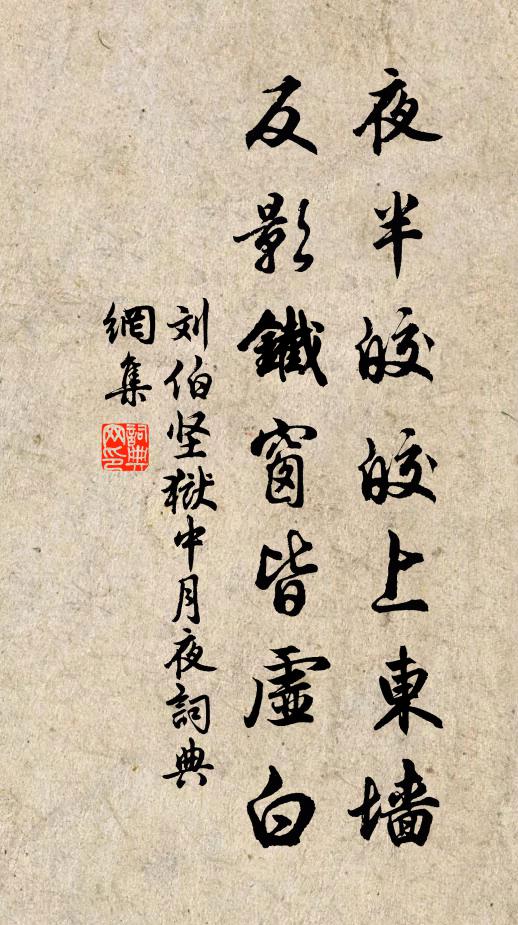 夜半皎皎上東墙
反影鐵窗皆虛白
刘伯坚獄中月夜詞典
網集
詞典网印